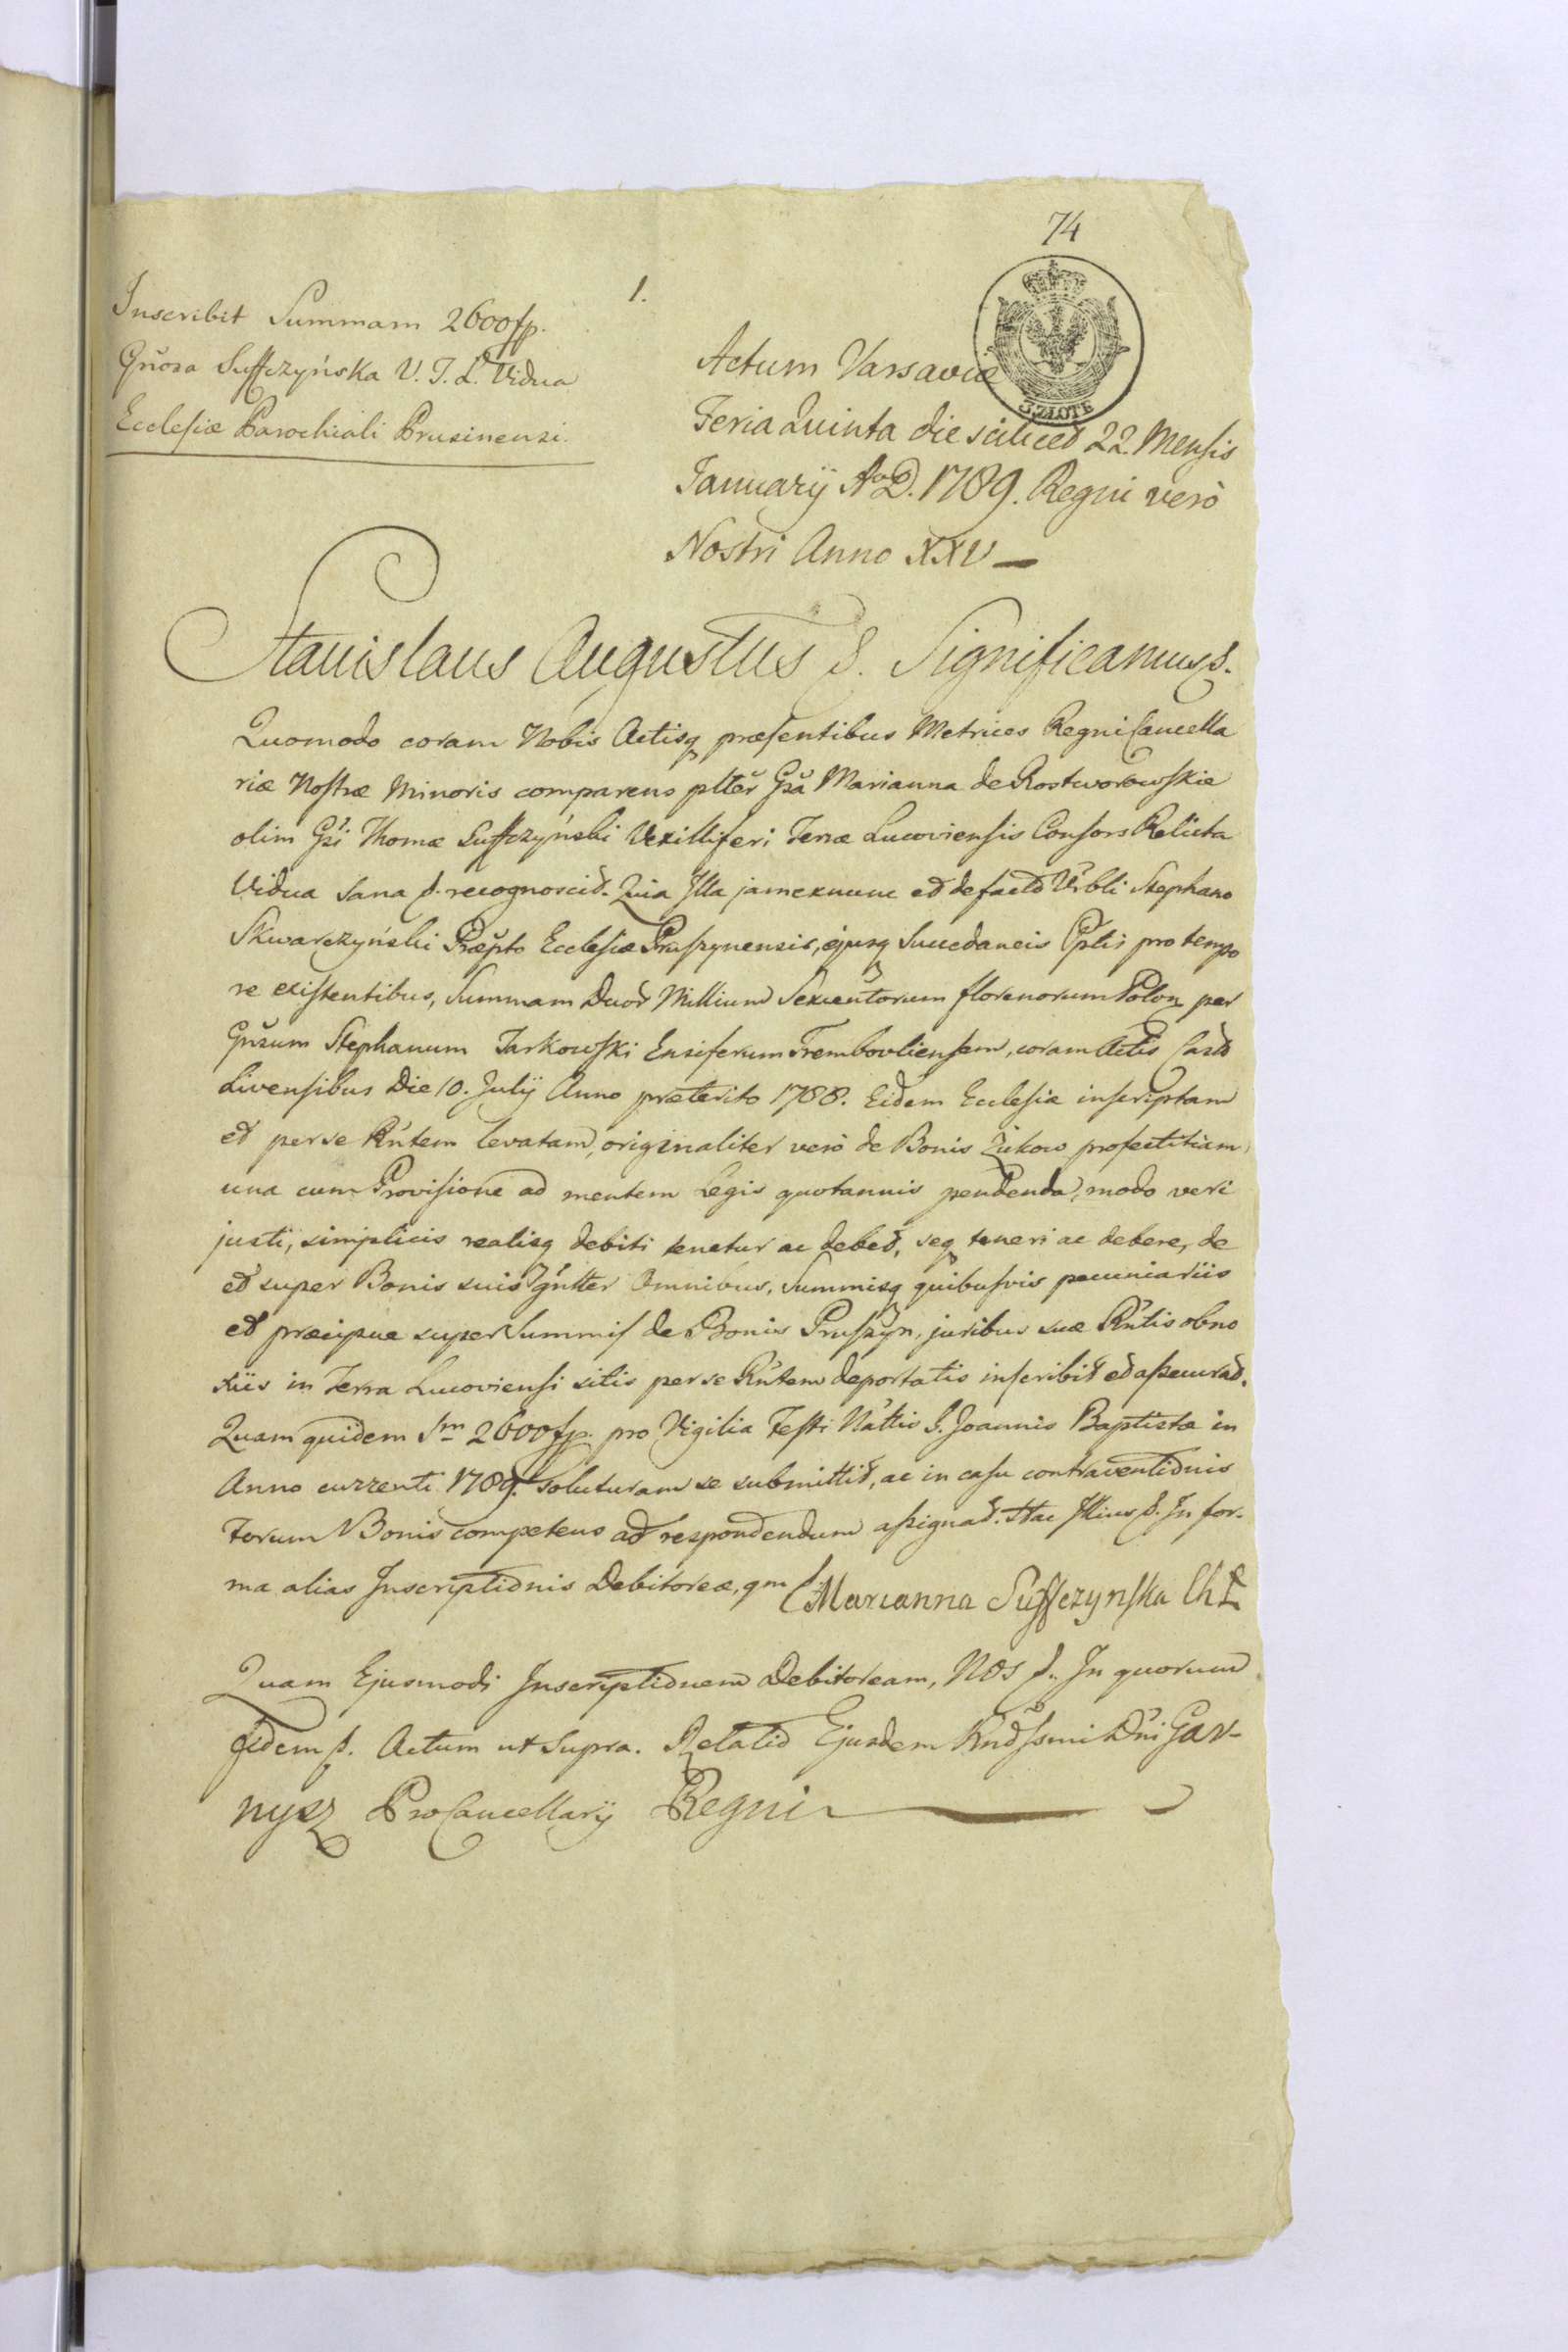 74
1.
Inscribit Summam 2600fp.
Gn̄osa Suffczyńska V. T. L. Vidua
Ecclesiæ Parochiali Prusinensi.
3. ZŁOTE
Actum Varsaviæ
Feria Quinta die scilicet 22. Mensis
Januarij A͞o D. 1789. Regni verò
Nostri Anno XXV
Stanislaus Augustus &. Significamus &.
Quomodo coram Nobis Actisq præsentibus Metrices Regni Cancella
riæ Nostræ Minoris comparens pltter Gsa Marianna de Rostworowskie
olim Gsi Thomæ Suffczyński Vexilliferi Terræ Lucoviensis Consors Relicta
Vidua sana &. recognoscit. Quia Illa jam ex nunc et de facto Vrbli Stephano
Skwarczyński Præpto Ecclesiæ Pruszynensis, ejusq Succedaneis Pptis pro tempo
re existentibus, Summam Duor Millium Sexcentorum florenorum Polon per
Gnsum Stephanum Jarkowski Ensiferum Trembovliensem, coram Actis Castr
Livensibus Die 10. Julij Anno præterito 1788. Eidem Ecclesiæ inscriptam
et per se Rntem levatam, originaliter verò de Bonis Zukow profectitiam
una cum Provisione ad mentem Legis quotannis pendenda, modo veri
justi, simplicis realisq debiti tenetur ac debet, seq teneri ac debere, de
et super Bonis suis Gnlter Omnibus, Summisq quibusvis pecuniariis
et præcipue super Summis de Bonis Pruszyn, juribus suæ Rntis obno
xiis in Terra Lucoviensi sitis per se Rntem deportatis inscribit et assecurat.
Quam quidem Sm 2600fp. pro Vigilia Festi Nattis S. Joannis Baptistæ in
Anno currenti 1789. soluturam se submittit, ac in casu contraventionis
forum Bonis competens ad respondendum assignat. Hac Illius &. In for-
ma alias Inscriptionis Debitoreæ, qm Marianna Suffczynska Ch Ł
Quam Ejusmodi Inscriptionem Debitoream, NOS &. In quorum
fidem &. Actum ut Supra. Relatio Ejusdem Rndssmi Dni Gar-
nysz ProCancellarij Regni